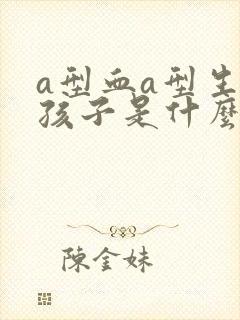 a型血a型生
孩子是什麼
陳金妹